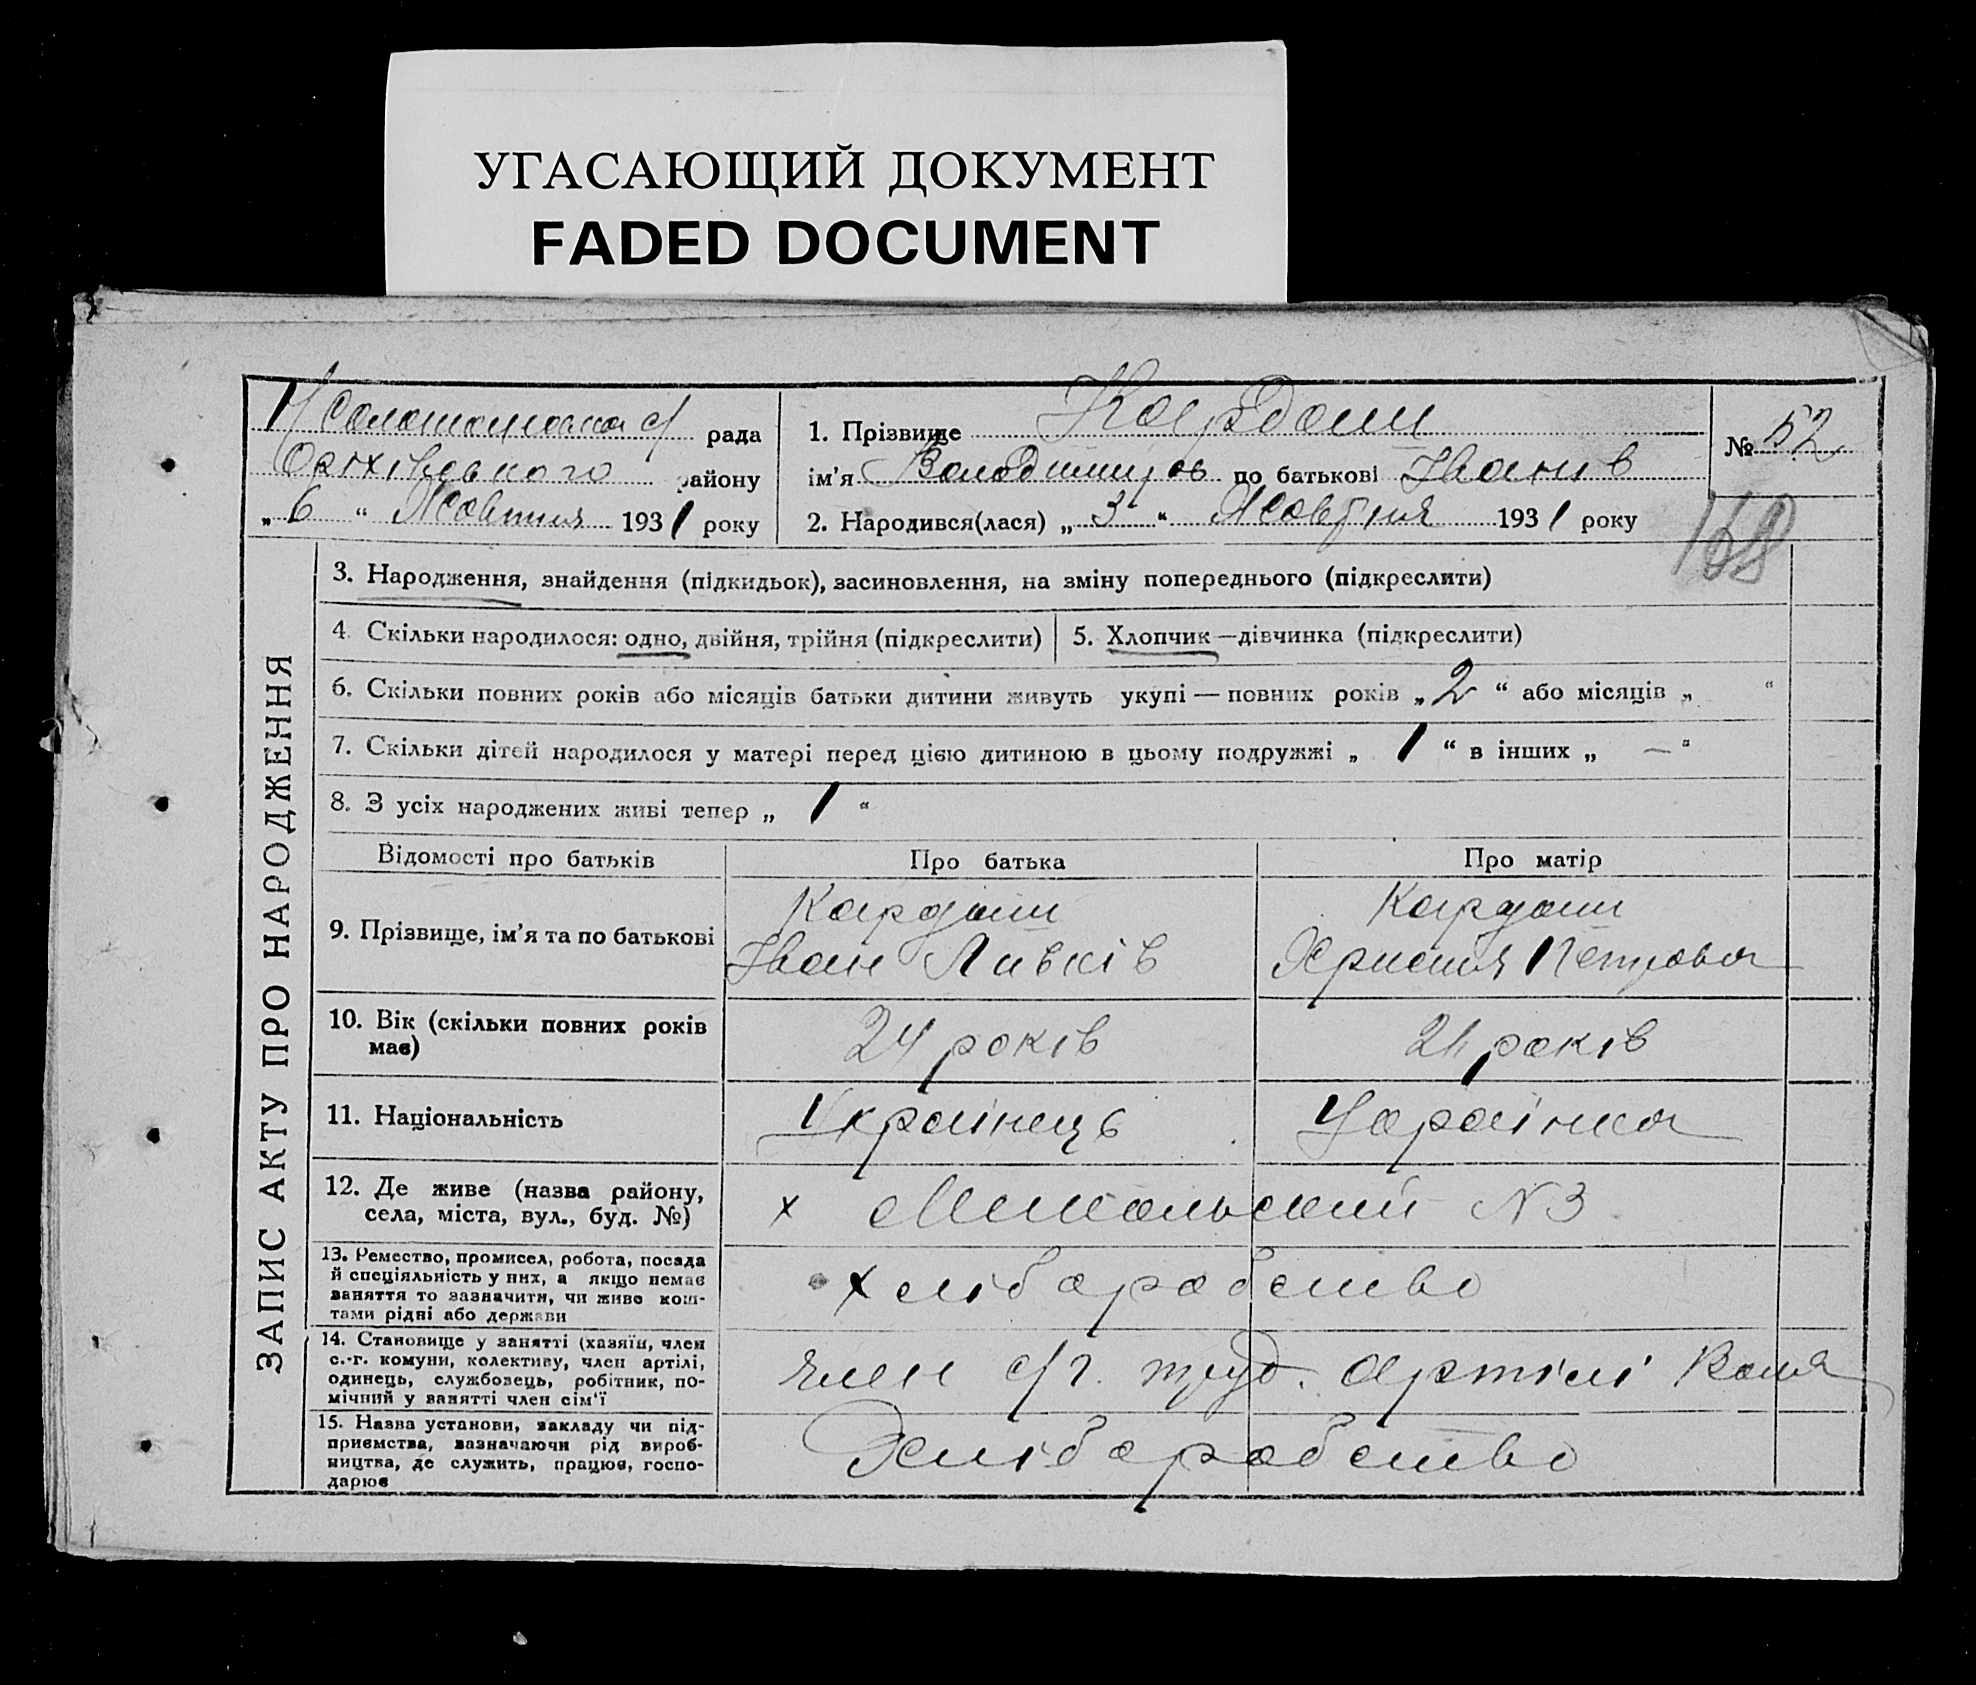 УГАСАЮЩИЙ ДОКУМЕНТ
FADED DOCUMENT
рада
Оріхівського району
„ 6 “ Жовтня 1931 року
1. Прізвище Кардаш
ім’я Володимир по батькові Іванів
2. Народився(лася) „ 3 “ Жовтня 1931 року
№ 52
168
ЗАПИС АКТУ ПРО НАРОДЖЕННЯ
3. Народження, знайдення (підкидьок), засиновлення, на зміну попереднього (підкреслити)
4. Скільки народилося: одно, двійня, трійня (підкреслити)
5. Хлопчик—дівчинка (підкреслити)
6. Скільки повних років або місяців батьки дитини живуть укупі — повних років „ 2 “ або місяців „ “
7. Скільки дітей народилося у матері перед цією дитиною в цьому подружжі „ 1 “ в інших „ — “
8. З усіх народжених живі тепер „ 1 “
Відомості про батьків
Про батька
Про матір
9. Прізвище, ім’я та по батькові
Кардаш
Іван
Кардаш
Христя Петрова
10. Вік (скільки повних років
має)
24 років
21 років
11. Національність
Українець
Українка
12. Де живе (назва району,
села, міста, вул., буд. №)
х N 3
13. Ремество, промисел, робота, посада
й спеціяльність у них, а якщо немає
заняття то зазначити, чи живе кош-
тами рідні або держави
хліборобство
14. Становище у занятті (хазяїн, член
с.-г. комуни, колективу, член артілі,
одинець, службовець, робітник, по-
мічний у занятті член сім’ї
член с/г. труд. артілі Воля
15. Назва установи, закладу чи під-
приємства, зазначаючи рід вироб-
ництва, де служить, працює, госпо-
дарює
Хліборобство